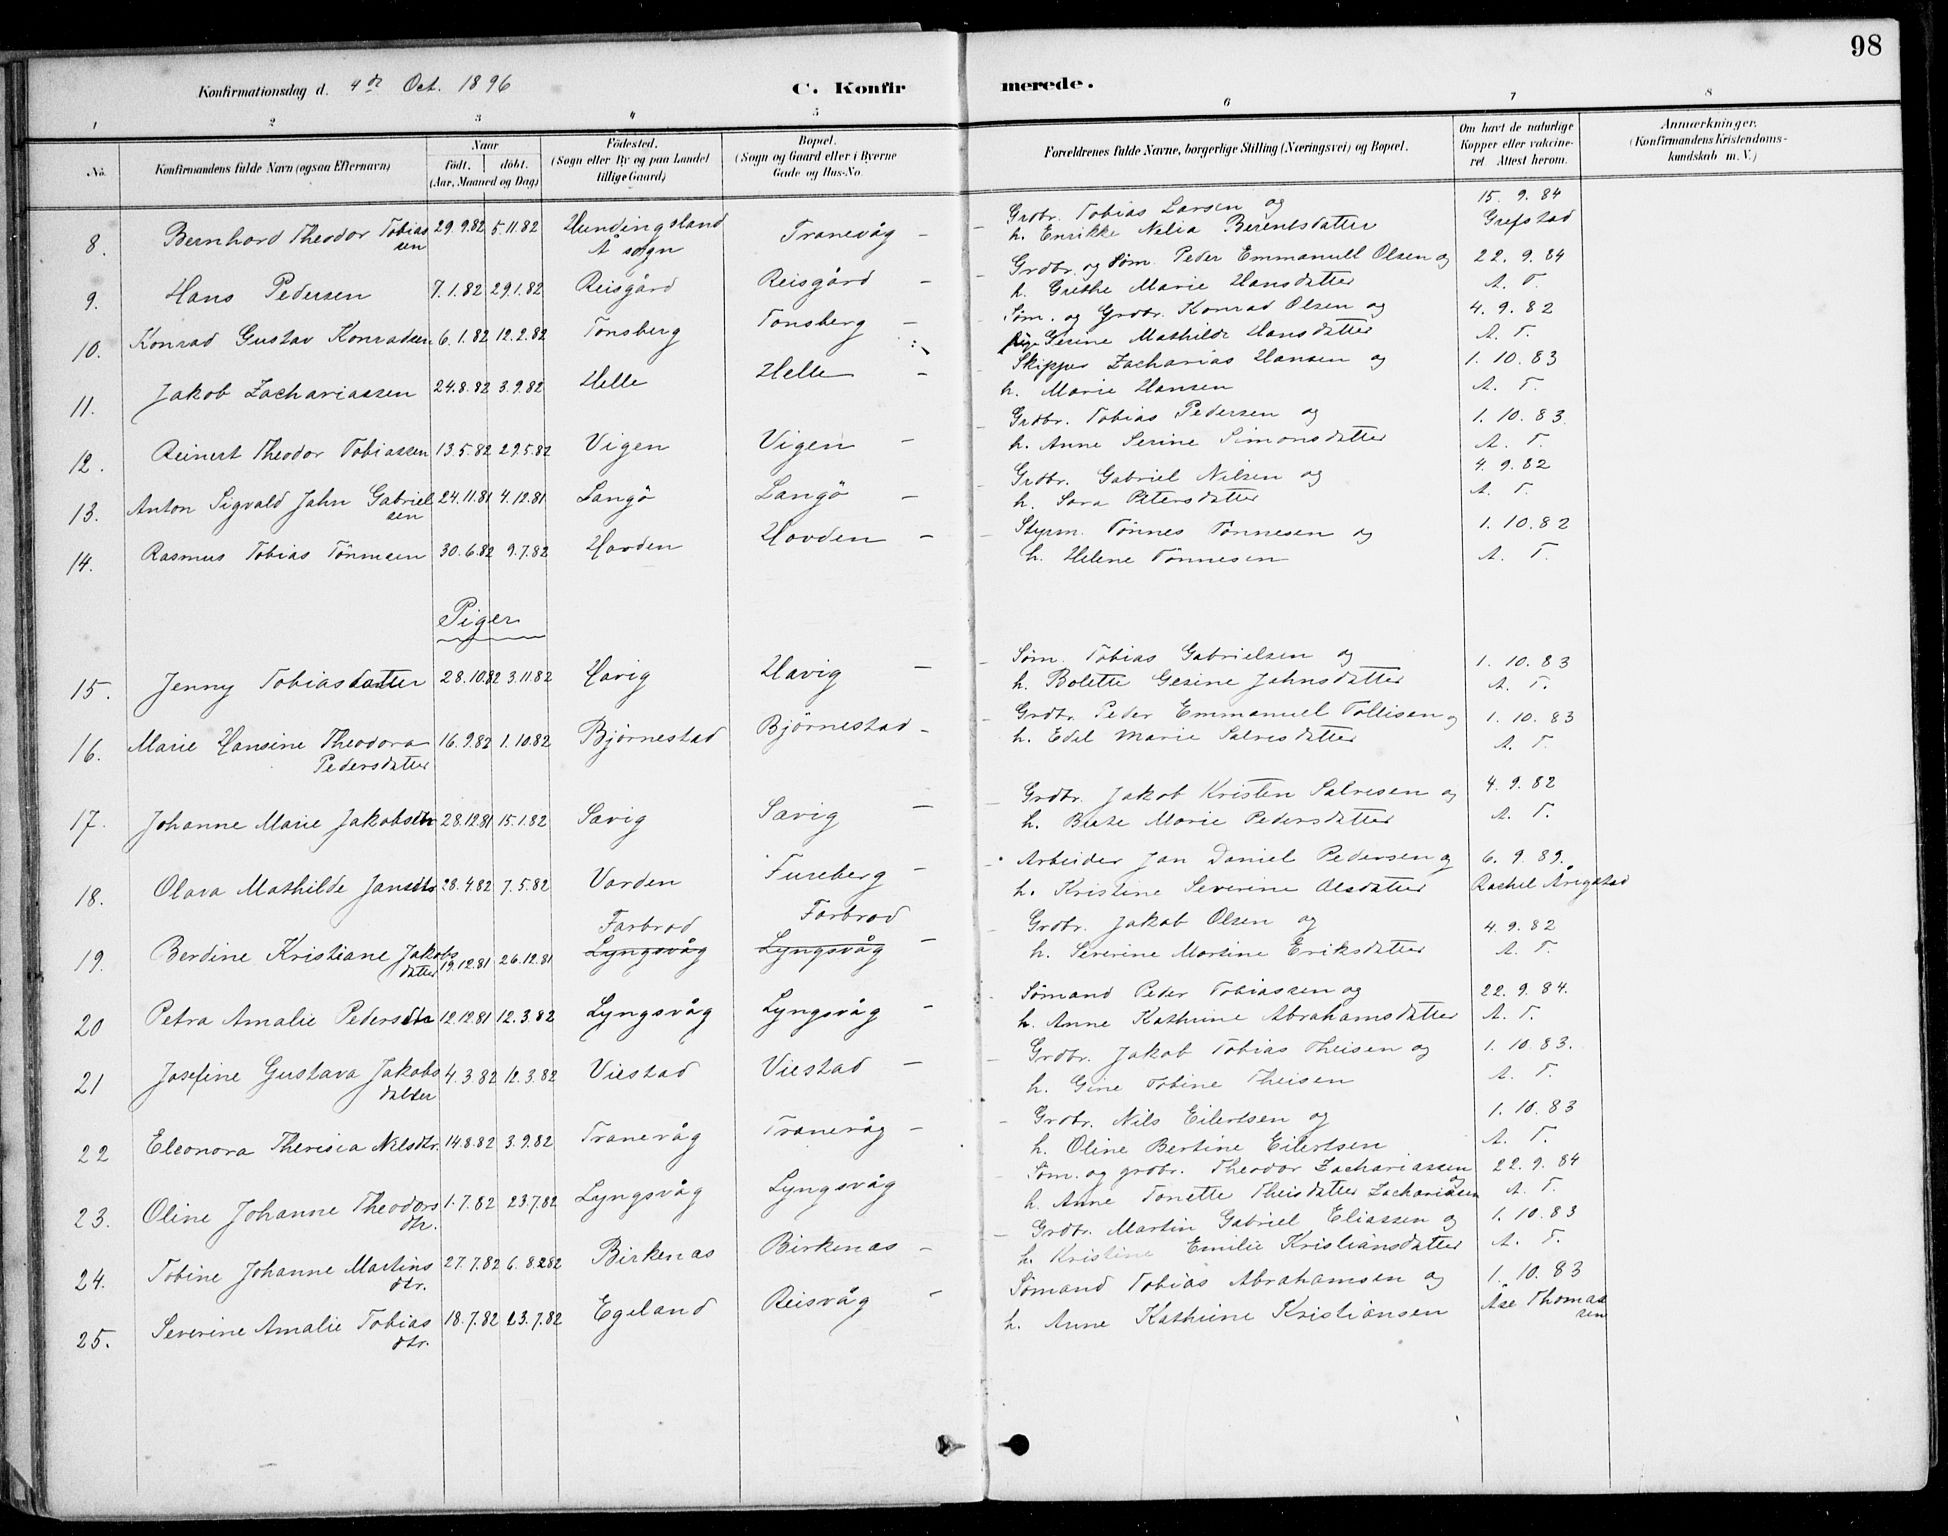 98
Konfirmationsdag d. 4de Oct. 1896 C. Konfirmerede.
1 2 3 4 5 6 7 8
No. Konfirmandens fulde Navn (ogsaa Efternavn) Naar født. døbt. (Aar, Maaned og Dag) Fødested. (Sogn eller By og paa Landet tillige Gaard) Bopæl. (Sogn og Gaard eller i Byerne Gade og Hus-No. Forældrenes fulde Navne, borgerlige Stilling (Næringsvei) og Bopæl. Om havt de naturlige Kopper eller vakcineret Attest herom. Anmærkninger. (Konfirmandens Kristendomskundskab m. V.)
8. Bernhard Theodor Tobiassen 29.9.82 5.11.82 Hundingsland Å sogn Tranevåg – Grdbr. Tobias Larsen og
h. Enrikke Nelia Berentsdatter 15. 9. 84 Grefstad
9. Hans Pedersen 7.1.82 29.1.82 Reisgård Reisgård – Grdbr. og Søm. Peder Emmanuel Olsen og
h. Grethe Marie Hansdatter 22. 9. 84 A. T.
10. Konrad Gustav Konradsen 6.1.82 12.2.82 Tonsberg Tonsberg – Søm. og Grdbr. Konrad Olsen og
Gesine Mathilde Hansdatter 4. 9. 82 A. T.
11. Jakob Zachariassen 24.8.82 3.9.82 Helle Helle – Skipper Zacharias Hansen og
h. Marie Hansen 1. 10. 83 A. T.
12. Reinert Theodor Tobiassen 13.5.82 29.5.82 Vigen Vigen – Grdbr. Tobias Pedersen og
h. Anne Serine Simonsdatter 1. 10. 83 A. T.
13. Anton Sigvald Jahn Gabrielsen 24.11.81 4.12.81 Langö Langö – Grdbr. Gabriel Nilsen og
h. Sara Petersdatter 4. 9. 82 A. T.
14. Rasmus Tobias Tönnesen 30.6.82 9.7.82 Hovden Hovden – Styrm. Tønnes Tønnesen og
h. Helene Tønnesen 1. 10. 82 A. T.
Piger
15. Jenny Tobiasdatter 28.10.82 3.11.82 Havig Havig – Søm. Tobias Gabrielsen og
h. Bolette Gesine Jahnsdatter 1. 10. 83 A. T.
16. Marie Hansine Theodora Pedersdatter 16.9.82 1.10.82 Bjørnestad Bjørnestad – Grdbr. Peder Emmanuel Tollisen og
h. Edel Marie Salvesdatter 1. 10. 83 A. T.
17. Johanne Marie Jakobsdtr 28.12.81 15.1.82 Sævig Sævig – Grdbr. Jakob Kristen Salvesen og
h. Beate Marie Pedersdatter 4. 9. 82 A. T.
18. Olava Mathilde Jansdtr 28.4.82 7.5.82 Varden Fureberg – Arbeider Jan Daniel Pedersen og
h. Kristine Severine Olsdatter 6. 9. 89. Rachel Årigstad
19. Berdine Kristiane Jakobsdatter 19.12.81 26.12.81 Farbrod Lyngsvåg Farbrod Lyngsvåg – Grdbr. Jakob Olsen og
h. Severine Martine Eriksdatter 4. 9. 82 A. T.
20 Petra Amalie Pedersdtr 12.12.81 12.3.82 Lyngsvåg Lyngsvåg – Sømand Peder Tobiassen og
h. Anne Kathrine Abrahamsdatter 22. 9. 84. A. T.
21 Josefine Gustava Jakobsdatter 4.3.82 12.3.82 Viestad Viestad – Grdbr. Jakob Tobias Theisen og
h. Gine Tobine Theisen 1. 10. 83. A. T.
22 Eleonora Theresia Nilsdtr. 14.8.82 3.9.82 Tranevåg Tranevåg – Grdbr. Nils Eilertsen og
h. Oline Bertine Eilertsen 1. 10. 83 A. T.
23. Oline Johanne Theodorsdtr. 1.7.82 23.7.82 Lyngsvåg Lyngsvåg Søm. og grdbr. Theodor Zachariassen og
h. Anne Tonette Theisdatter Zachariasen 22. 9. 84 A. T.
24. Tobine Johanne Martinsdtr. 27.7.82 6.8.82 Birkenas Birkenas – Grdbr. Martin Gabriel Eliassen og
h. Kristine Emilie Kristiansdatter 1. 10. 83 A. T.
25. Severine Amalie Tobiasdtr. 18.7.82 23.7.82 Egeland Reisvåg – Sømand Tobias Abrahamsen og
h. Anne Kathrine Kristiansen 1. 10. 83 Ase Thomassen